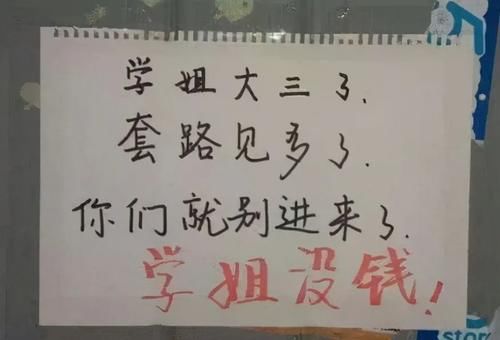 学姐大三了.
套路见多了.
你们就别进来了.
学姐没钱!
stor